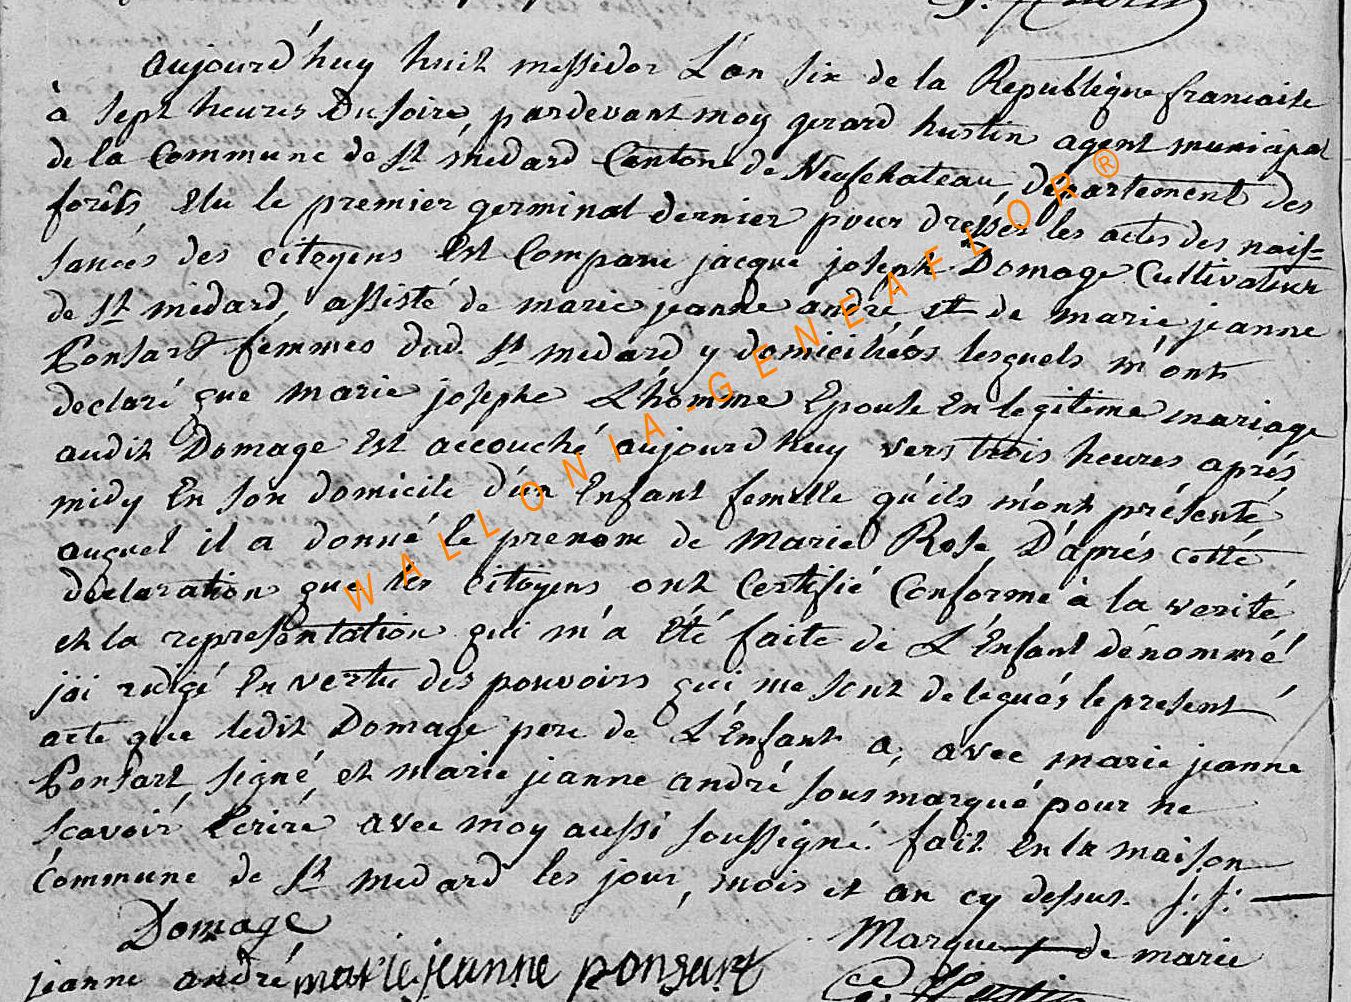 aujourd'huy huit messidor L'an six de la Republèque francaise
à sept heures Du soire, pardevant moy gerard hustin agent municipal
de la Commune de St médard Canton de Neufchateau, département des
forêts, Elu le premier germinal dernier pour dresser les actes des nais=
sances des citoyens Est Comparu jacque joseph Domage Cultivateur
de St médard, assisté de marie jeanne andré et de marie jeanne
Ponsart femmes dud. St médard y domiciliées lesquels m'ont
declaré que marie josephe Lhomme Epouse En legitime mariage
audit Domage Est accouché aujourd huy vers trois heures aprés
midy En son domicile d'un Enfant femelle qu'ils m'ont présenté
auquel il a donné le prenom de Marie Rose, D'aprés cette
déclaration que les citoyens ont Certifié Conforme à la verité
et la representation qui m'a été faite de L'Enfant dénommé
j'ai redigé En vertu des pouvoirs qui me sont delegués le present
acte que ledit Domage pere de L'Enfant a, avec marie jeanne
Ponsart, signé, et marie jeanne andré sousmarqué pour ne
scavoir Ecrire, avec moy aussi soussigné. fait En la maison
Commune de St médard les jour, mois et an cy dessus. f: f:
Domage
Marque + de marie
jeanne andré marie jeanne ponsart
G. Hustin
WALLONIA-GENEAFLOR®